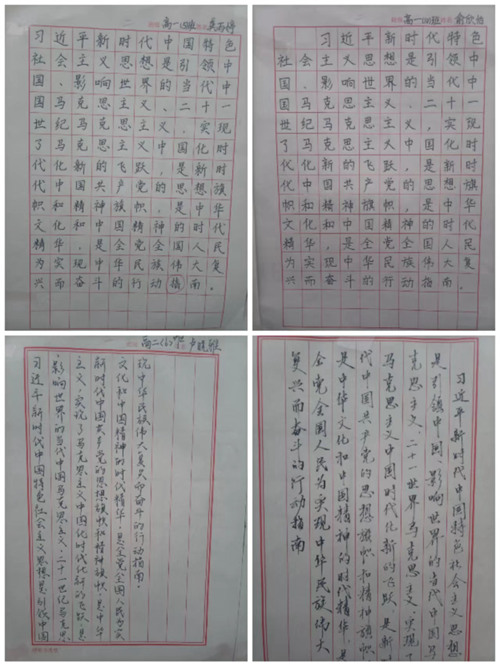 高一
习近平新时代中国特色
社会主义思想是引领中
国、影响世界的当代中
国马克思主义、二十一
世纪马克思主义,实现
了马克思主义中国化时
代化新的飞跃,是新时
代中国共产党的思想旗
帜和精神旗帜,是中华
文化和中国精神的时代
精华,是全党全国人民
为实现中华民族伟大复
兴而奋斗的行动指南。
高一
习近平新时代中国特色
社会主义思想是引领中
国、影响世界的当代中
国马克思主义、二十一
世纪马克思主义,实现
了马克思主义中国化时
代化新的飞跃,是新时
代中国共产党的思想旗
帜和精神旗帜,是中华
文化和中国精神的时代
精华,是全党全国人民
为实现中华民族伟大复
兴而奋斗的行动指南。
高二
习近平新时代中国特色社会主义思想是引领中国
、影响世界的当代中国马克思主义、二十一世纪马克思
主义,实现了马克思主义中国化时代化新的飞跃,是
新时代中国共产党的思想旗帜和精神旗帜,是中华
文化和中国精神的时代精华,是全党全国人民为实
现中华民族伟大复兴而奋斗的行动指南。
习近平新时代中国特色社会主义思想
是引领中国、影响世界的当代中国马
克思主义、二十一世纪马克思主义,实现了
马克思主义中国时代化新的飞跃,是新时
代中国共产党的思想旗帜和精神旗帜
是中华文化和中国精神的时代精华,是
全党全国人民为实现中华民族伟大
复兴而奋斗的行动指南